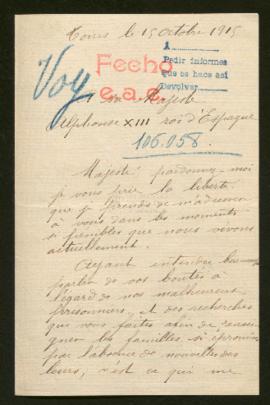 Tours le 15 Octobre 1915
1
Pedir informes
que se hace así
Devolver
Voy
Fecho
e.a.e.
Sa Majesté
Alphonse XIII roi d'Espagne
106.058.
Majesté pardonnez-moi
je vous prie la liberté
que je prends de m'adresser
à vous dans les moments
si pénibles que nous vivons
actuellement.
Ayant entendu
parler de vos bontés à
l'égard de nos malheureux
prisonniers, et des recherches
que vous faites afin de rensei
gner les familles, si éprouvées
par l'absence de nouvelles des
leurs, c'est ce qui me